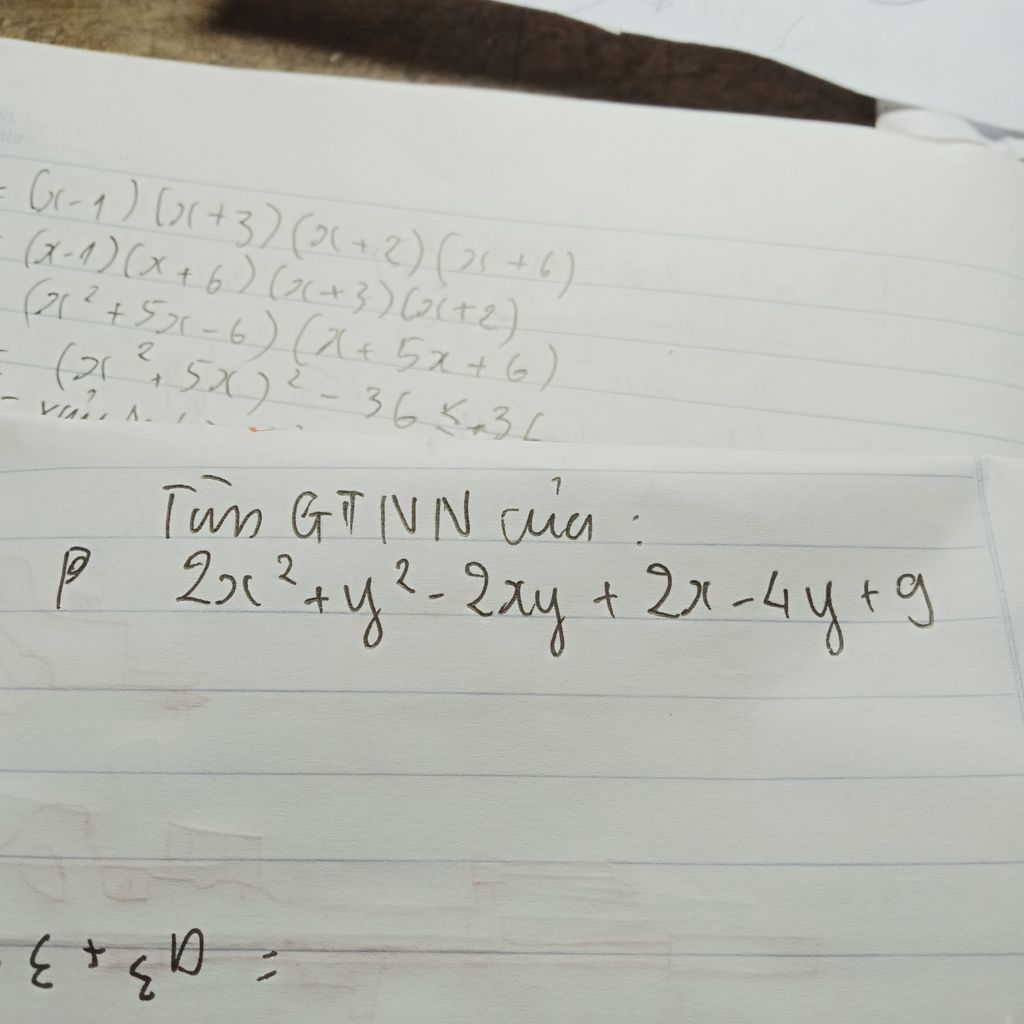 = (x-1)(x+3)(x+2)(x+6)
(x-1)(x+6)(x+3)(x+2)
(x²+5x-6)(x+5x+6)
= (x²+5x)² - 36
Tìm GTNN của :
P 2x²+y²-2xy+2x-4y+9